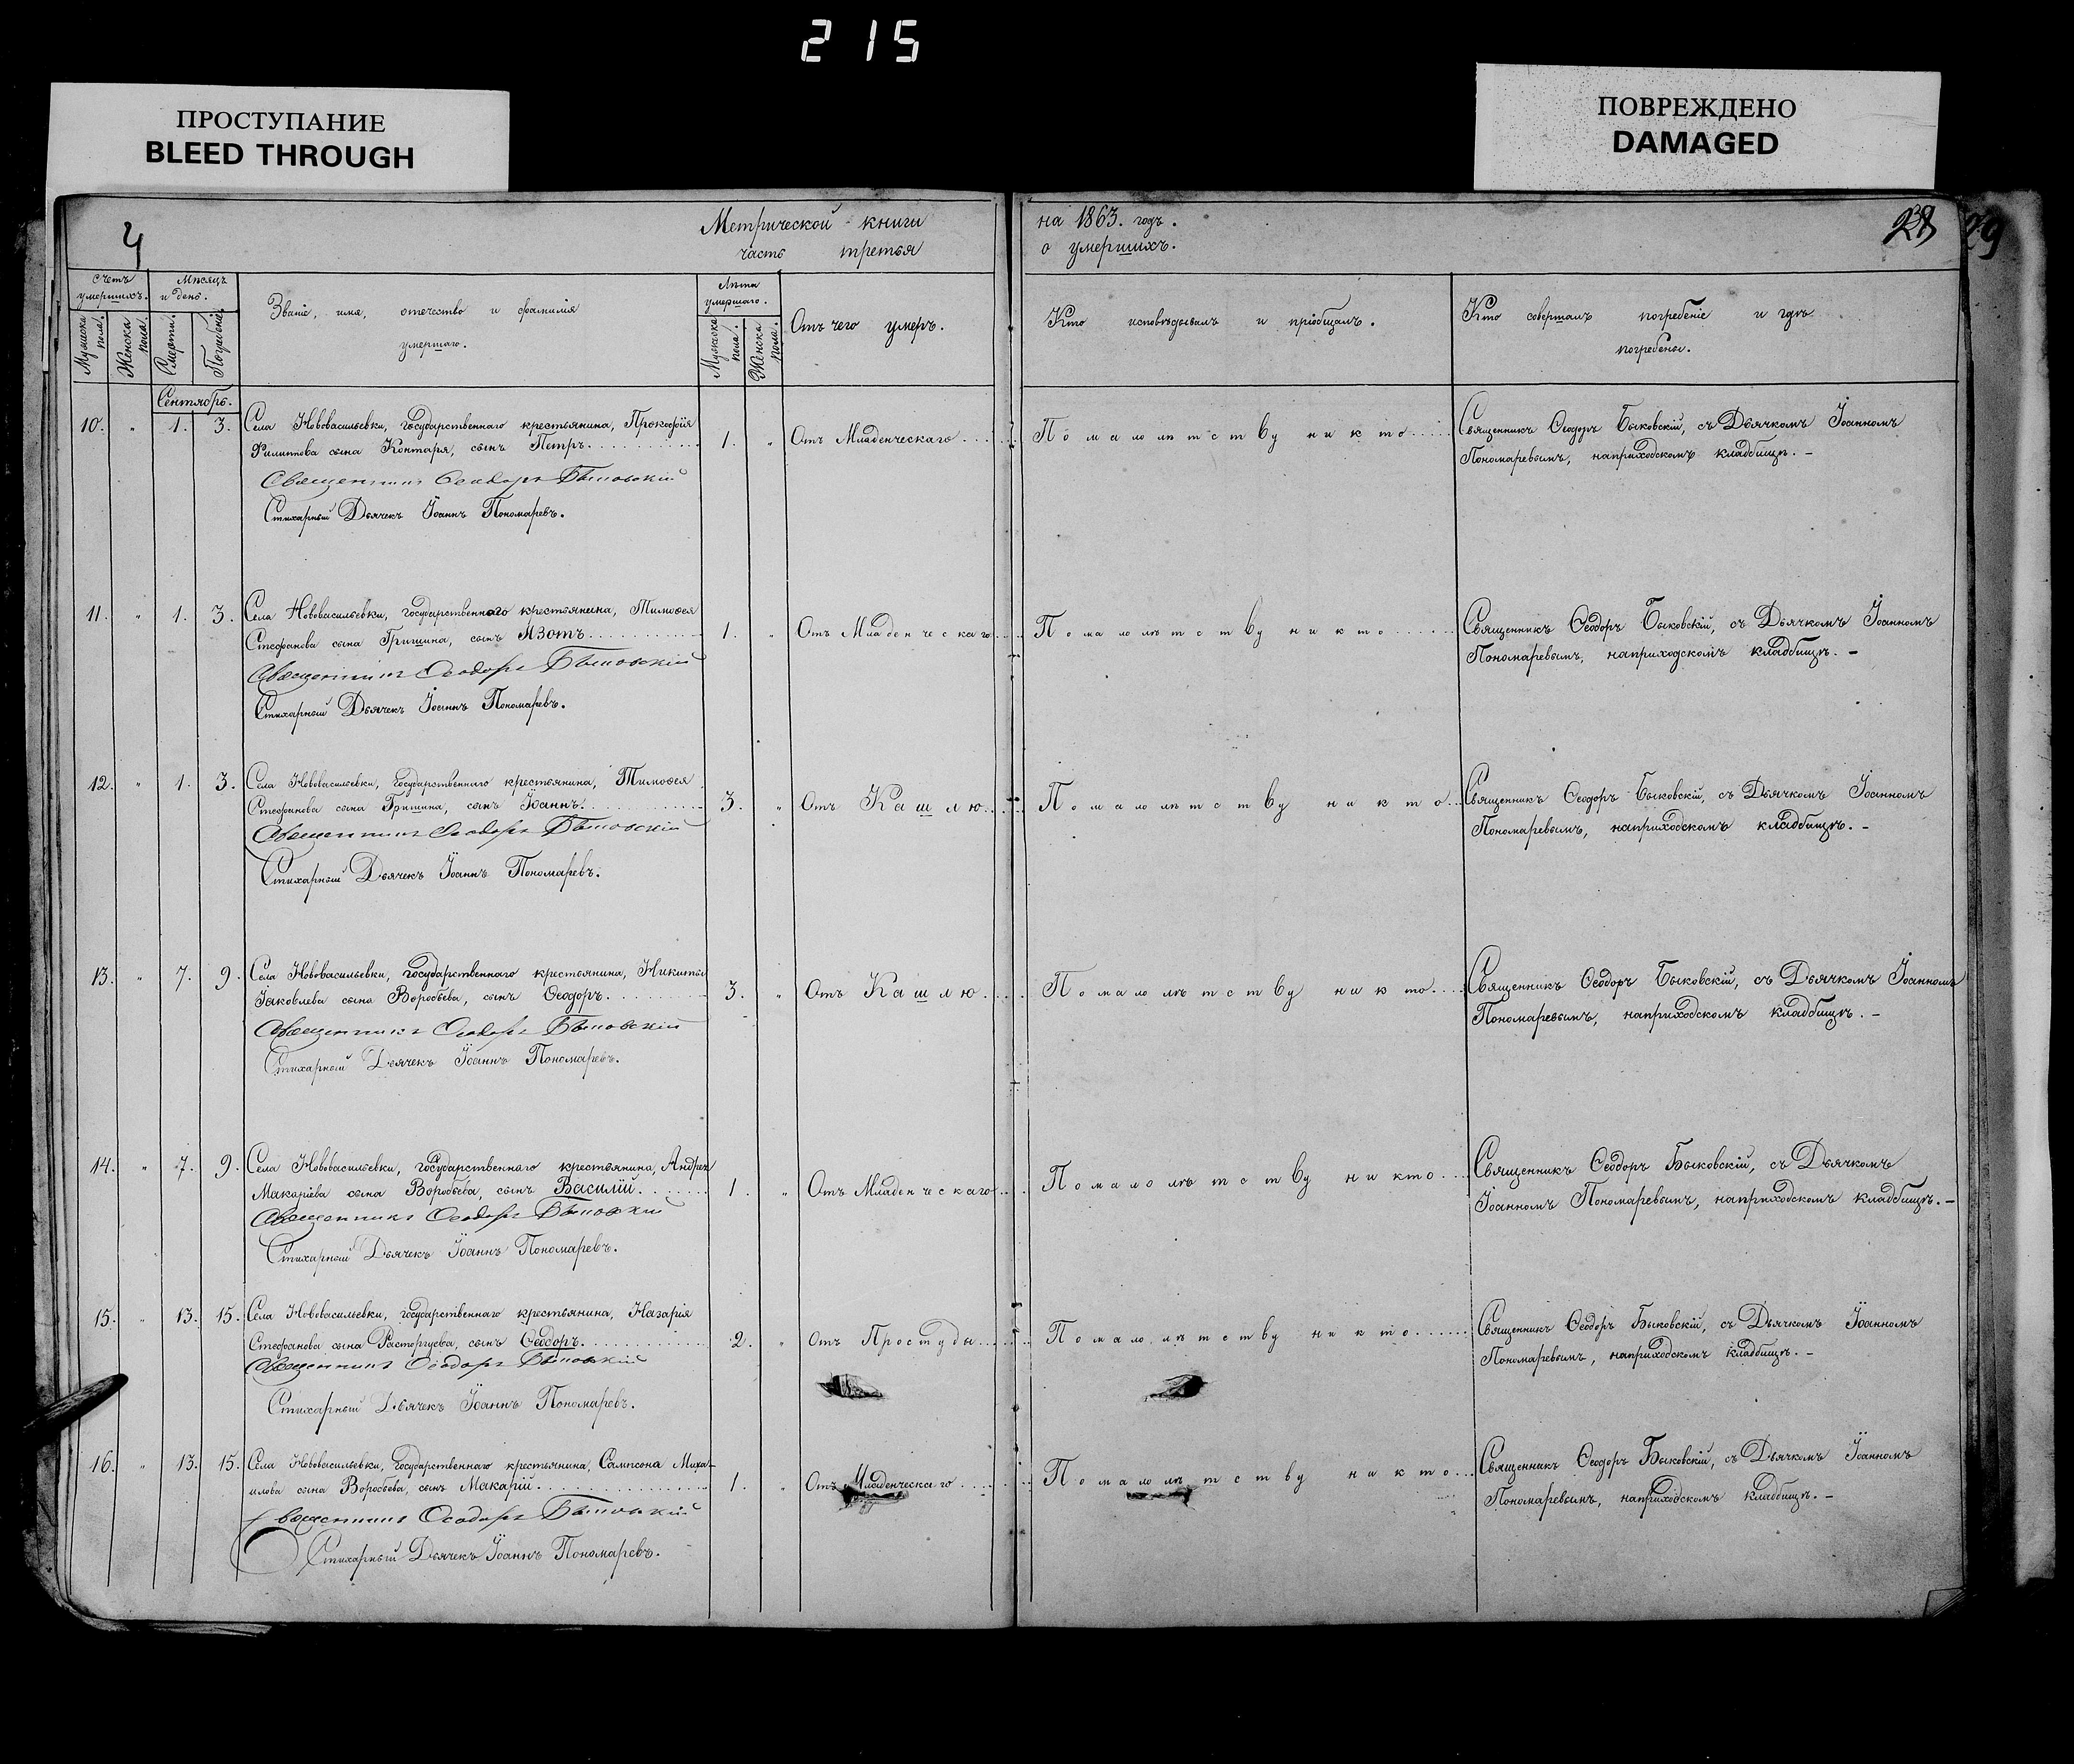 215
ПРОСТУПАНИЕ
BLEED THROUGH
ПОВРЕЖДЕНО
DAMAGED
Метрической книги на 1863. годъ.
часть третья о умершихъ.
29
Счетъ умершихъ.
Мужеска пола.
Женска пола.
Мѣсяцъ и день.
Смерти.
Погребенія
Званіе, имя, отечество и фамилія
умершаго.
Лѣта умершаго.
Мужеска пола.
Женска пола.
Отъ чего умеръ.
Кто исповѣдывалъ и пріобщалъ.
Кто совершалъ погребеніе и гдѣ
погребены.
Сентябрь.
10. " 1. 3. Села Нововасильевки, государственнаго крестьянина, Прокофія
Филиппова сына Контаря, сынъ Петръ. 1. " Отъ Младенческаго. По малолѣтству никто. Священникъ Ѳеодоръ Быковскій, съ Дьячкомъ Іоанномъ
Пономаревымъ, наприходскомъ кладбищѣ. –
Священникъ Ѳеодоръ Быковскій
Стихарный Дьячекъ Іоаннъ Пономаревъ.
11. " 1. 3. Села Нововасильевки, государственнаго крестьянина, Тимоѳея
Стефанова сына Гришина, сынъ Азотъ. 1. " Отъ Младенческаго. По малолѣтству никто. Священникъ Ѳеодоръ Быковскій, съ Дьячкомъ Іоанномъ
Пономаревымъ, наприходскомъ кладбищѣ. –
Священникъ Ѳеодоръ Быковскій
Стихарный Дьячекъ Іоаннъ Пономаревъ.
12. " 1. 3. Села Нововасильевки, государственнаго крестьянина, Тимоѳея
Стефанова сына Гришина, сынъ Іоаннъ. 3. " Отъ Кашлю. По малолѣтству никто. Священникъ Ѳеодоръ Быковскій, съ Дьячкомъ Іоанномъ
Пономаревымъ, наприходскомъ кладбищѣ. –
Священникъ Ѳеодоръ Быковскій
Стихарный Дьячекъ Іоаннъ Пономаревъ.
13. " 7. 9. Села Нововасильевки, государственнаго крестьянина, Никиты
Іаковлева сына Воробьева, сынъ Ѳеодоръ. 3. " Отъ Кашлю. По малолѣтству никто. Священникъ Ѳеодоръ Быковскій, съ Дьячкомъ Іоанномъ
Пономаревымъ, наприходскомъ кладбищѣ. –
Священникъ Ѳеодоръ Быковскій
Стихарный Дьячекъ Іоаннъ Пономаревъ.
14. " 7. 9. Села Нововасильевки, государственнаго крестьянина, Андрея
Макаріева сына Воробьева, сынъ Василій. 1. " Отъ Младенческаго. По малолѣтству никто. Священникъ Ѳеодоръ Быковскій, съ Дьячкомъ
Іоанномъ Пономаревымъ, наприходскомъ кладбищѣ. –
Священникъ Ѳеодоръ Быковскій
Стихарный Дьячекъ Іоаннъ Пономаревъ.
15. " 13. 15. Села Нововасильевки, государственнаго крестьянина, Назарія
Стефанова сына Расторгуева, сынъ Ѳеодоръ. 2. " Отъ Простуды. По малолѣтству никто. Священникъ Ѳеодоръ Быковскій, съ Дьячкомъ Іоанномъ
Пономаревымъ, наприходскомъ кладбищѣ. –
Священникъ Ѳеодоръ Быковскій
Стихарный Дьячекъ Іоаннъ Пономаревъ.
16. " 13. 15. Села Нововасильевки, государственнаго крестьянина, Сампсона Миха-
илова сына Воробьева, сынъ Макарій. 1. " Отъ Младенческаго. По малолѣтству никто. Священникъ Ѳеодоръ Быковскій, съ Дьячкомъ Іоанномъ
Пономаревымъ, наприходскомъ кладбищѣ. –
Священникъ Ѳеодоръ Быковскій
Стихарный Дьячекъ Іоаннъ Пономаревъ.